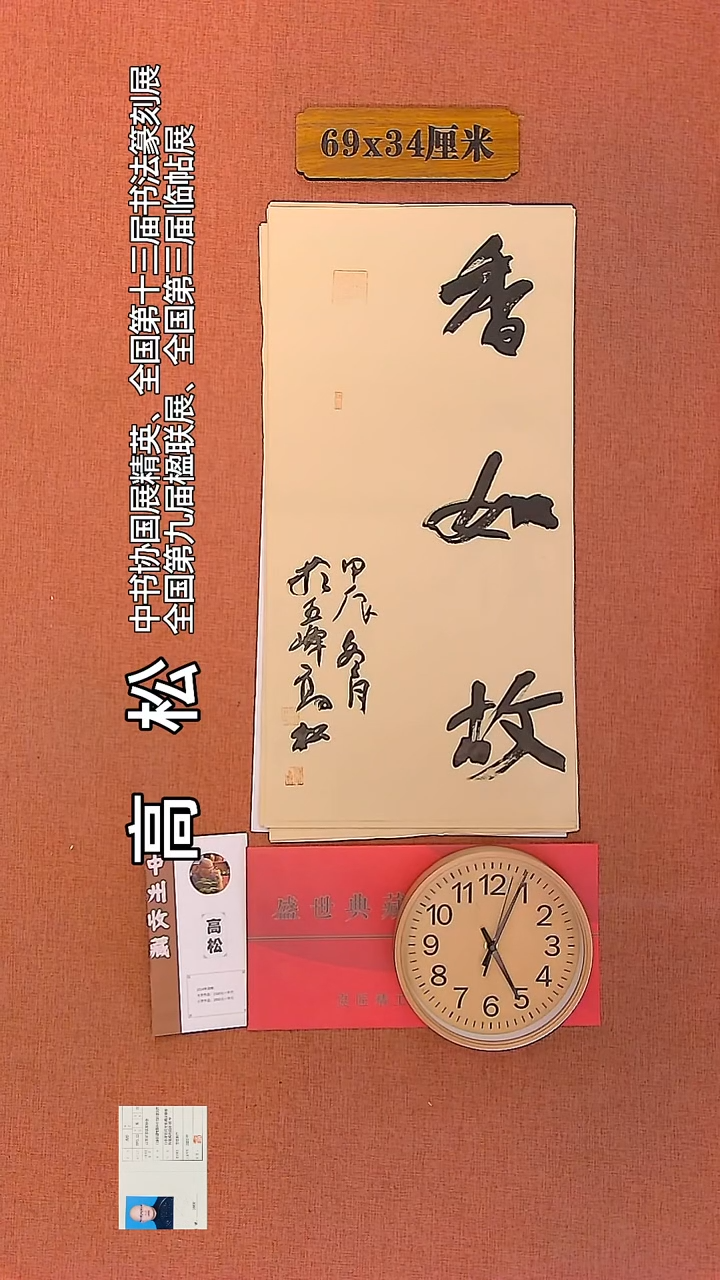 69x34厘米
香如故
甲辰冬月
於五峰高松
高松
中书协国展精英、全国第十三届书法篆刻展
全国第九届楹联展、全国第三届临帖展
高松
盛世典藏
12
1
2
3
4
5
6
7
8
9
10
11